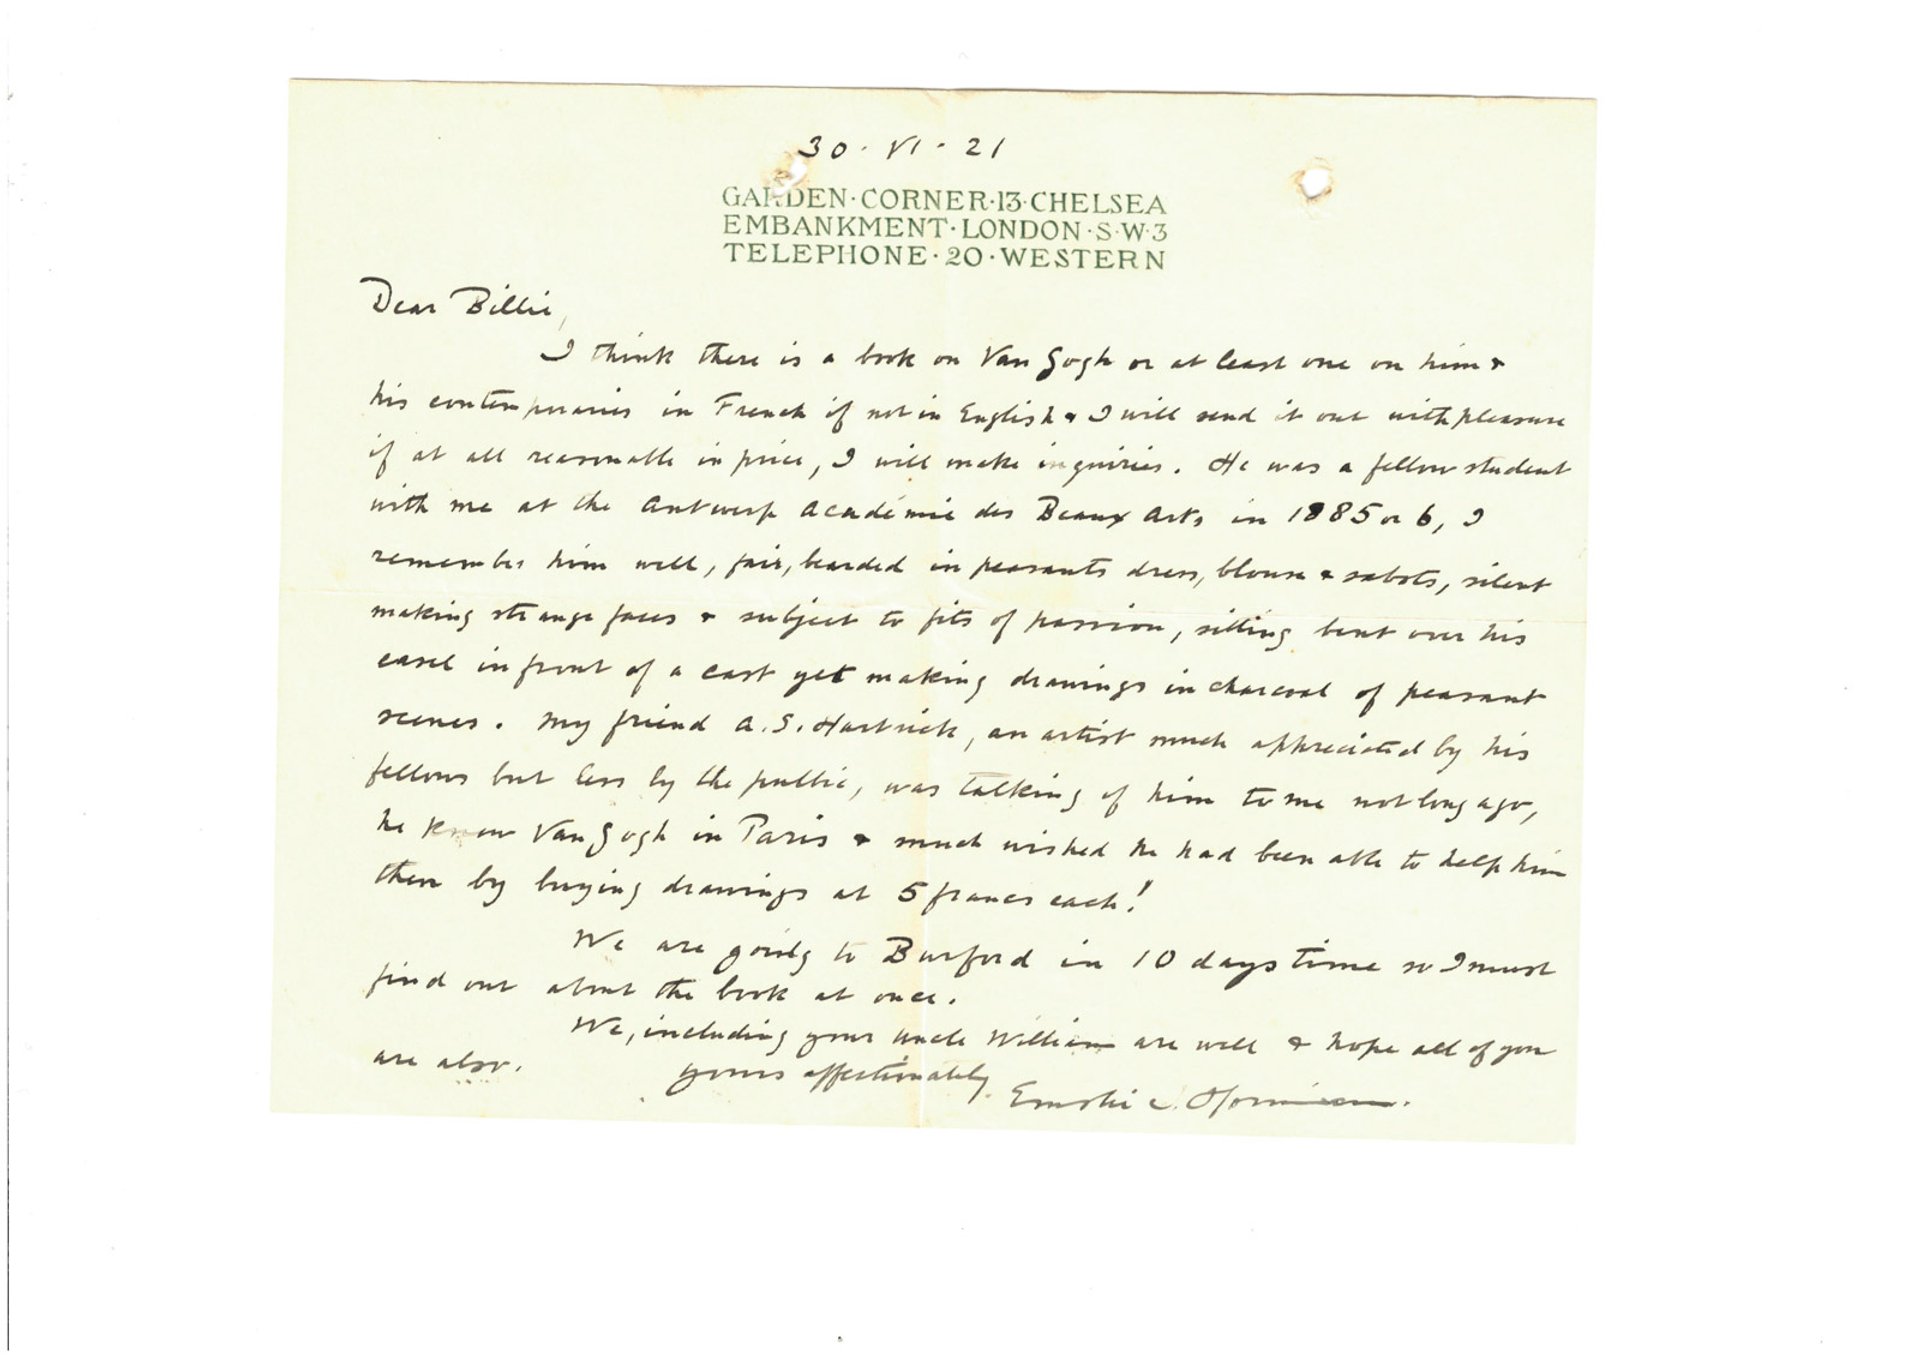 30·VI·21
GARDEN·CORNER·13·CHELSEA
EMBANKMENT·LONDON·S·W·3
TELEPHONE·20·WESTERN
Dear Billie,
I think there is a book on Van Gogh or at least one on him &
his contemporaries in French if not in English & I will send it out with pleasure
if at all reasonable in price, I will make inquiries. He was a fellow student
with me at the Antwerp Académie des Beaux Arts in 1885 or 6, I
remember him well, fair, bearded in peasants dress, blouse & sabots, silent
making strange faces & subject to fits of passion, sitting bent over his
easel in front of a cast yet making drawings in charcoal of peasant
scenes. My friend A.S. Hartrick, an artist much appreciated by his
fellows but less by the public, was talking of him to me not long ago,
he knew Van Gogh in Paris & much wished he had been able to help him
then by buying drawings at 5 francs each!
We are going to Burford in 10 days time so I must
find out about the book at once.
We, including your uncle William are well & hope all of you
are also.
yours affectionately